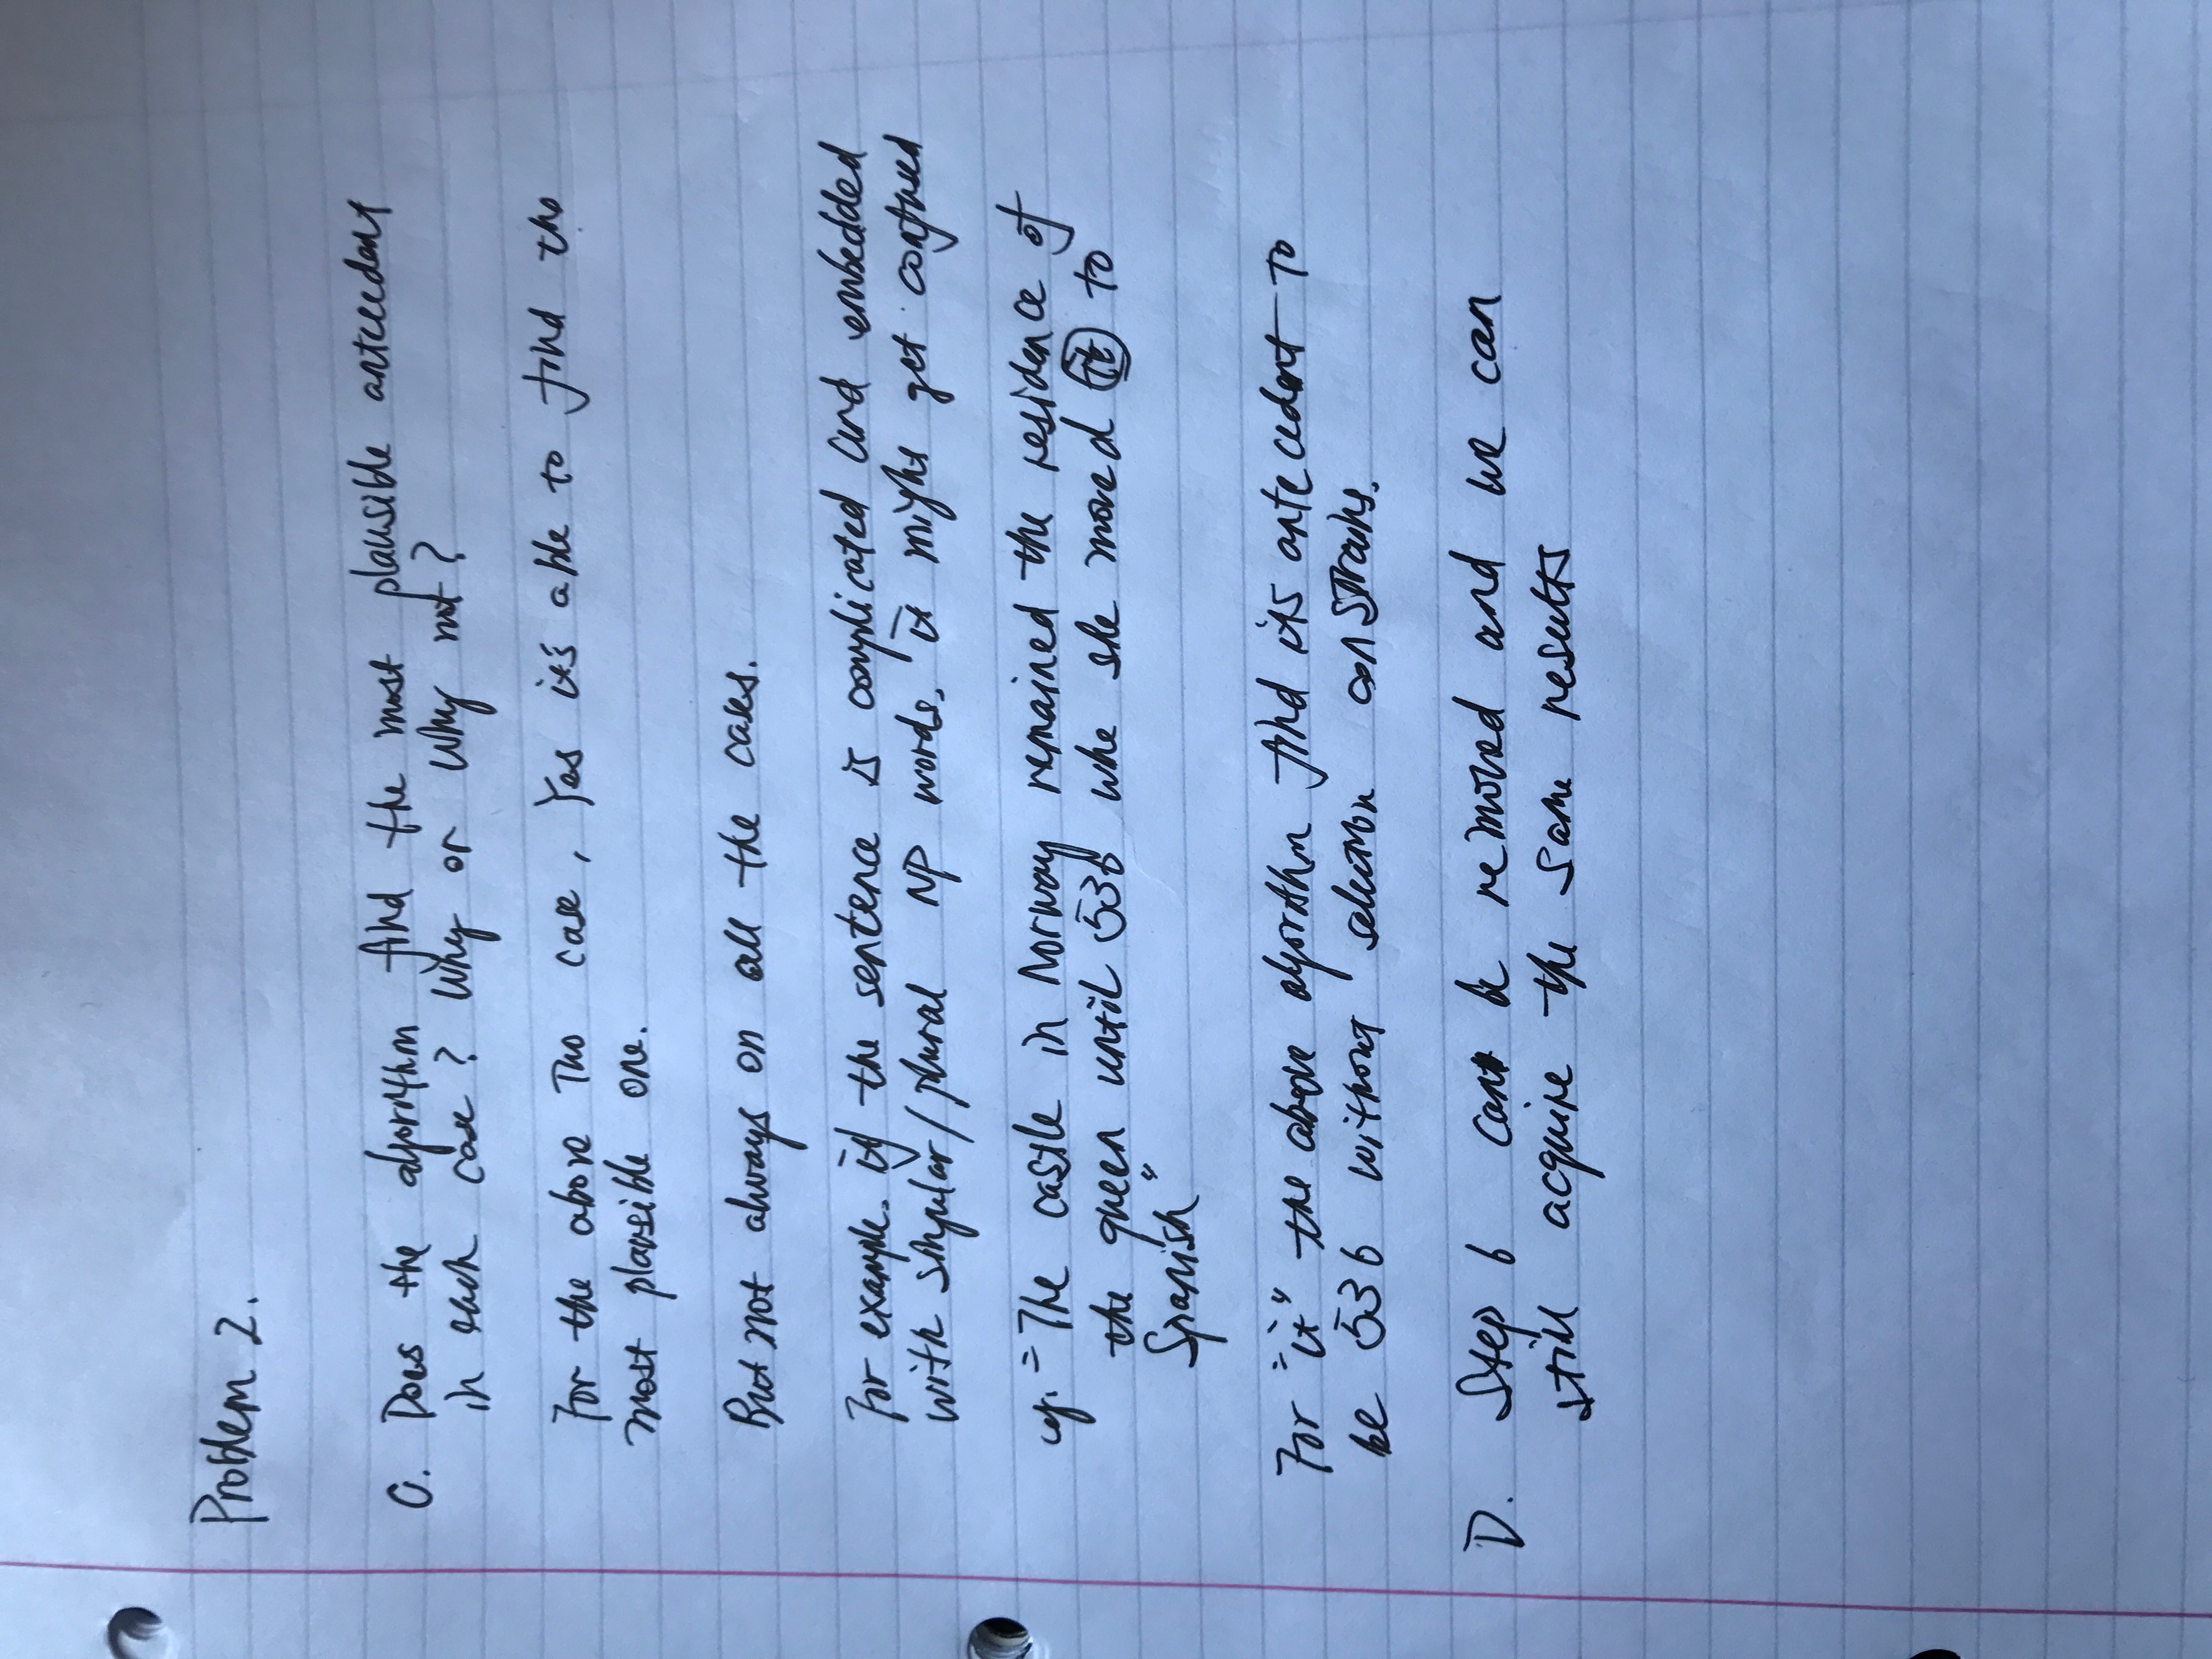 Problem 2.
C. Does the algorithm find the most plausible antecedent
in each case? Why or Why not?
For the above Two case, Yes it's able to find the
most plausible one.
But not always on all the cases.
For example. if the sentence is complicated and embedded
with singular/plural NP words, it might get confused
eg. "The castle in Norway remained the residence of
the queen until 536 whe she moved it to
Spanish"
For "it" the above algorithm find its antecedent to
be 536 without selection constrains.
D. Step 6 can be removed and we can
still acquire the same results